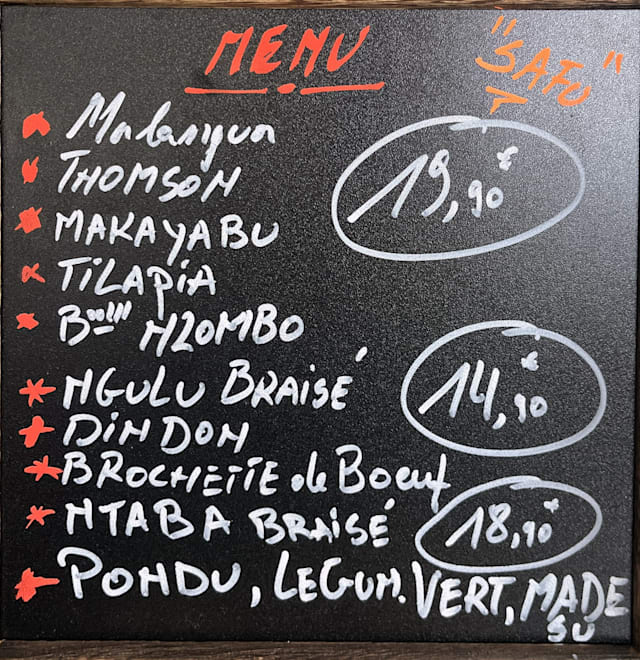 MENU "SAFU"
Malangwa
THOMSON
19,90€
MAKAYABU
TiLApiA
Boo!!! NZOMBO
NGULU BRAiSÉ
14,90€
DiNDON
BROCHETTE de Boeuf
NTABA BRAISÉ 18,90€
PONDU, LEGUM. VERT, MADE
SU